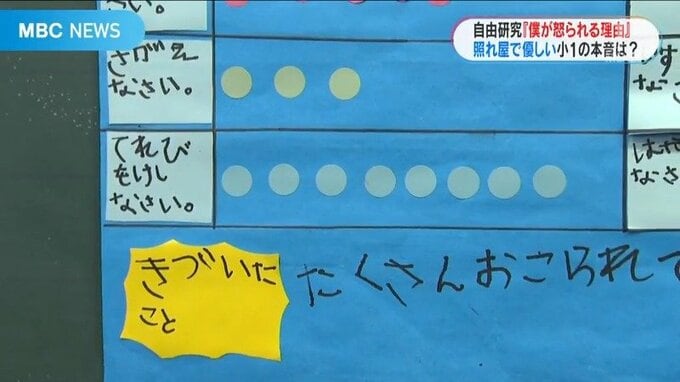 MBC NEWS
自由研究『僕が怒られる理由』
照れ屋で優しい小1の本音は?
きがえ
なさい。
てれび
をけし
なさい。
なさ
きづいた
こと
たくさんおこられて